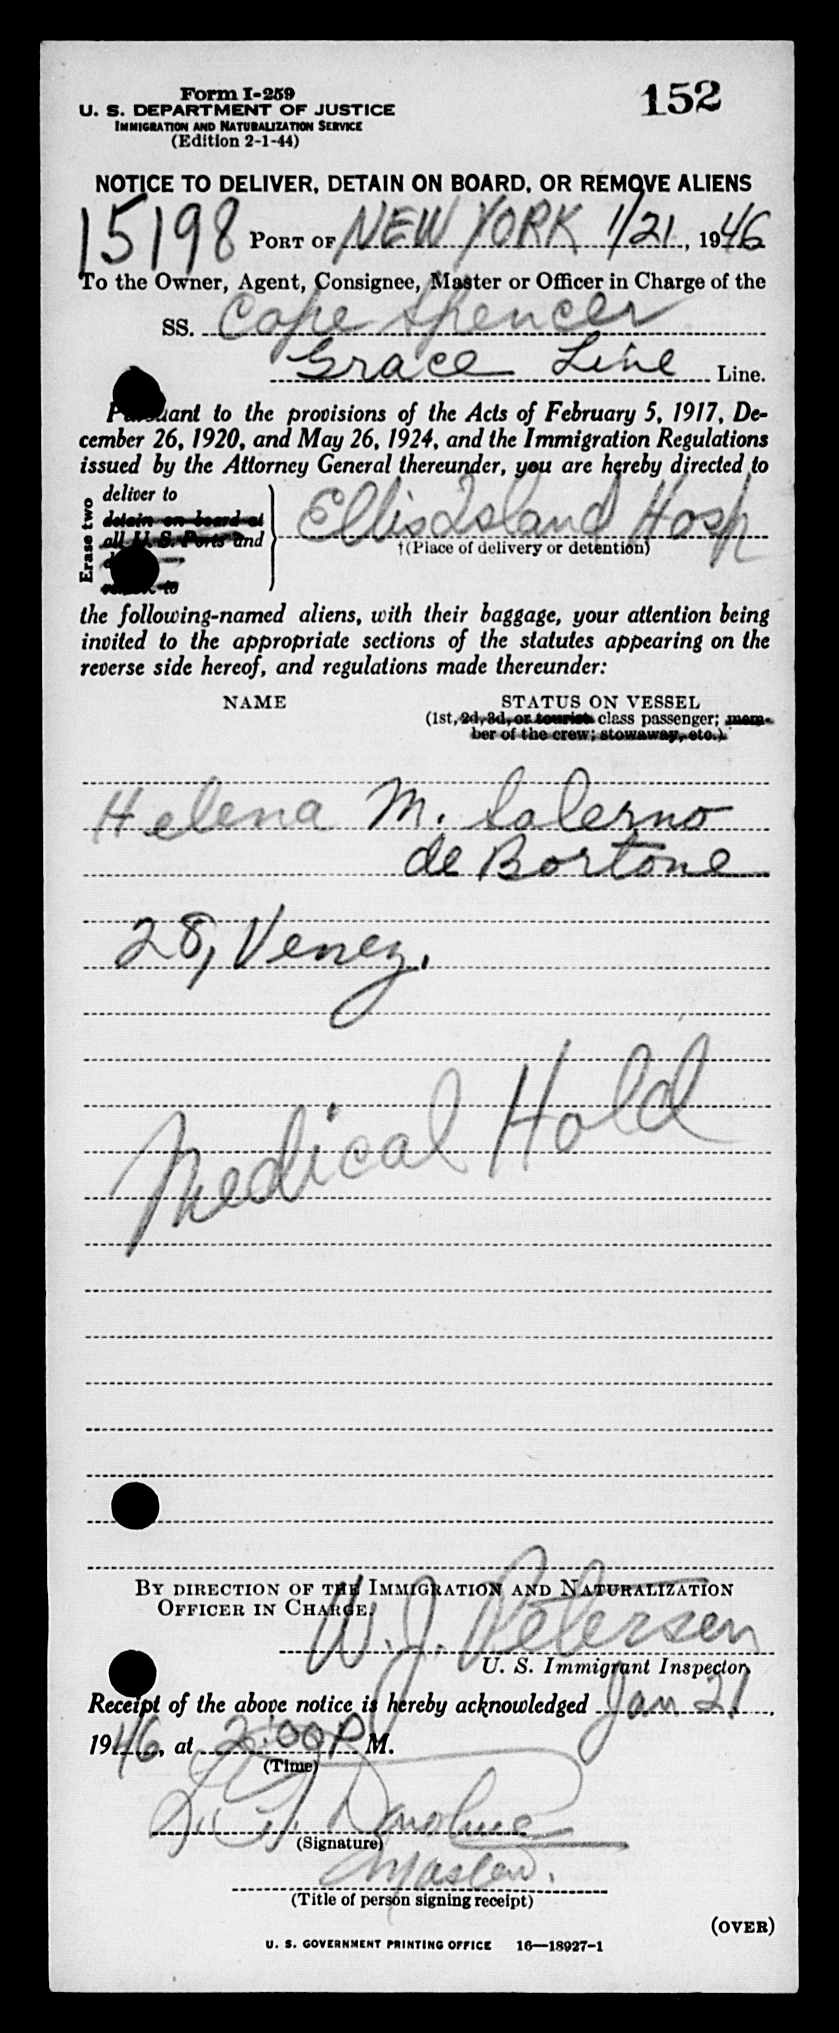 Form I-259
U. S. DEPARTMENT OF JUSTICE
IMMIGRATION AND NATURALIZATION SERVICE
(Edition 2-1-44)
152
NOTICE TO DELIVER, DETAIN ON BOARD, OR REMOVE ALIENS
15198 PORT OF NEW YORK 1/21, 1946
To the Owner, Agent, Consignee, Master or Officer in Charge of the
SS. Cape Spencer
Grace Line Line.
Pursuant to the provisions of the Acts of February 5, 1917, De-
cember 26, 1920, and May 26, 1924, and the Immigration Regulations
issued by the Attorney General thereunder, you are hereby directed to
Erase two
deliver to
detain on board at
all U. S. Ports and
Ellis Island Hosp
†(Place of delivery or detention)
to
the following-named aliens, with their baggage, your attention being
invited to the appropriate sections of the statutes appearing on the
reverse side hereof, and regulations made thereunder:
NAME STATUS ON VESSEL
(1st, 2d, 3d, or tourist class passenger; mem-
ber of the crew; stowaway, etc.)
Helena M. Salerno
de Bortone
28, Venez.
Medical Hold
BY DIRECTION OF THE IMMIGRATION AND NATURALIZATION
OFFICER IN CHARGE.
W. J. Petersen
U. S. Immigrant Inspector.
Receipt of the above notice is hereby acknowledged Jan 21,
1946, at 2:00 P M.
(Time)
(Signature)
Master.
(Title of person signing receipt)
(OVER)
U. S. GOVERNMENT PRINTING OFFICE 16—18927-1